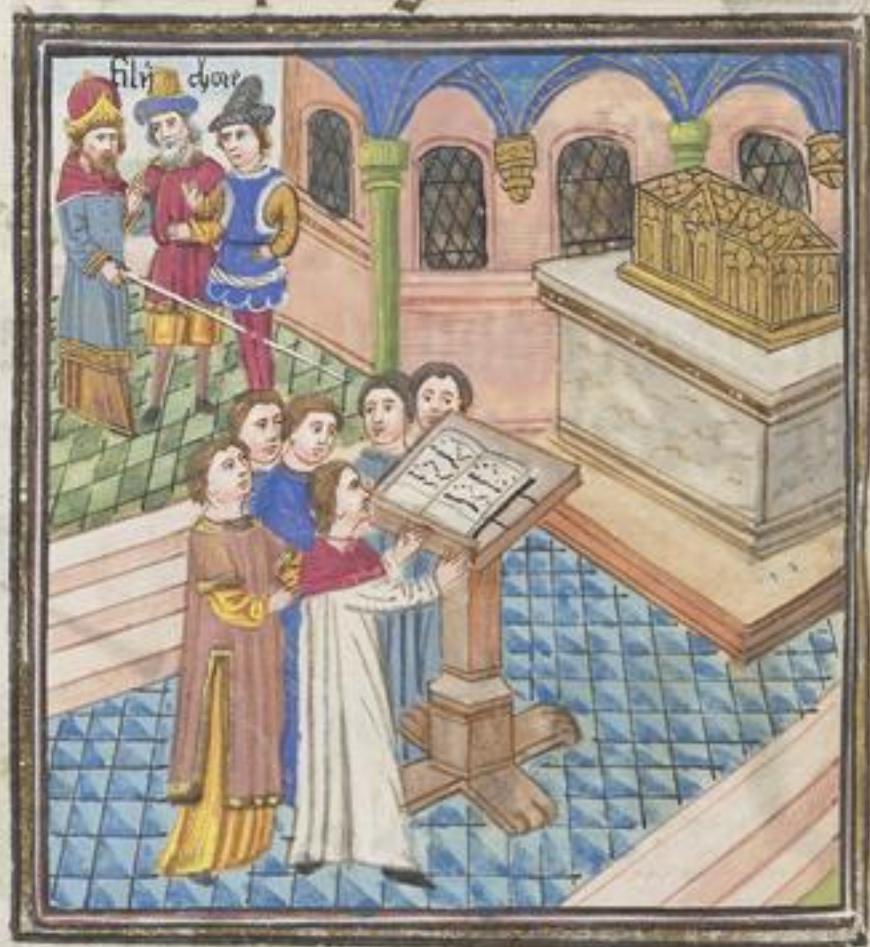 filij chore